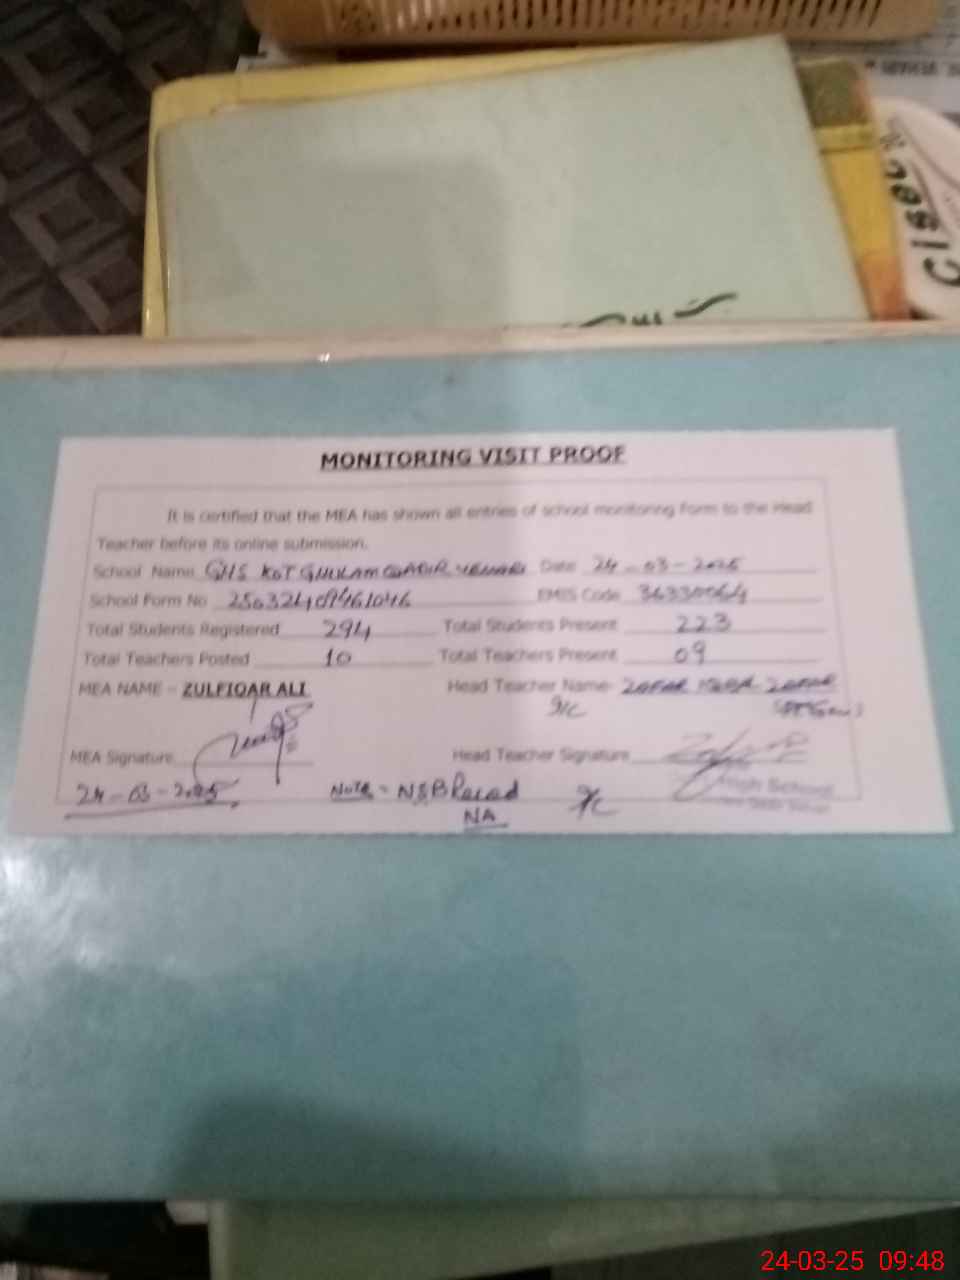 MONITORING VISIT PROOF
It is certified that the MEA has shown all entries of school monitoring Form to the Head
Teacher before its online submission.
School Name GHS KOT GHULAM QADIR VEHARI Date 24-03-2025
School Form No EMIS Code 36330064
Total Students Registered 294 Total Students Present 223
Total Teachers Posted 10 Total Teachers Present 09
MEA NAME - ZULFIQAR ALI Head Teacher Name- ZAFAR IQBAL ZAFAR
I/C
MEA Signature Head Teacher Signature
24-03-2025 Note - NSB Record I/C
NA
High School
Closeup
24-03-25 09:48